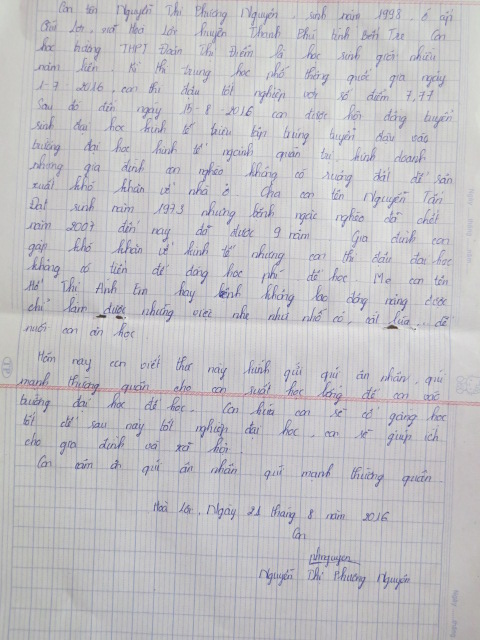 Con tên Nguyễn Thị Phương Nguyên, sinh năm 1998, ở ấp
Lợi, xã Hoà Lợi huyện Thạnh Phú tỉnh Bến Tre. Con
học trường THPT Đoàn Thị Điểm là học sinh giỏi nhiều
năm liền. Kì thi trung học phổ thông quốc gia ngày
1-7-2016, con thi đậu tốt nghiệp với số điểm 7,77
Sau đó đến ngày 15-8-2016 con được hội đồng tuyển
sinh đại học kinh tế triệu tập trúng tuyển đậu vào
trường đại học kinh tế ngành quản trị kinh doanh
nhưng gia đình con nghèo không có ruộng đất để sản
xuất khó khăn về nhà ở. Cha con tên Nguyễn Tấn
Đạt sinh năm 1973 nhưng bệnh ngặc nghèo đã chết
năm 2007 đến nay đã được 9 năm. Gia đình con
gặp khó khăn về kinh tế nhưng con thi đậu đại học
không có tiền để đóng học phí để học. Mẹ con tên
Hồ Thị Anh Em hay bệnh không lao động nặng được
chỉ làm được những việc nhẹ như nhổ cỏ, cắt lúa... để
nuôi con ăn học
Hôm nay con viết thư này kính gửi quí ân nhân, quí
mạnh thường quân cho con suất học bổng để con vào
trường đại học để học. Con hứa con sẽ cố gắng học
tốt để sau này tốt nghiệp đại học, con sẽ giúp ích
cho gia đình và xã hội.
Con cám ơn quí ân nhân quí mạnh thường quân
Hoà Lợi, Ngày 21 tháng 8 năm 2016
Con
nhnguyen
Nguyễn Thị Phương Nguyên